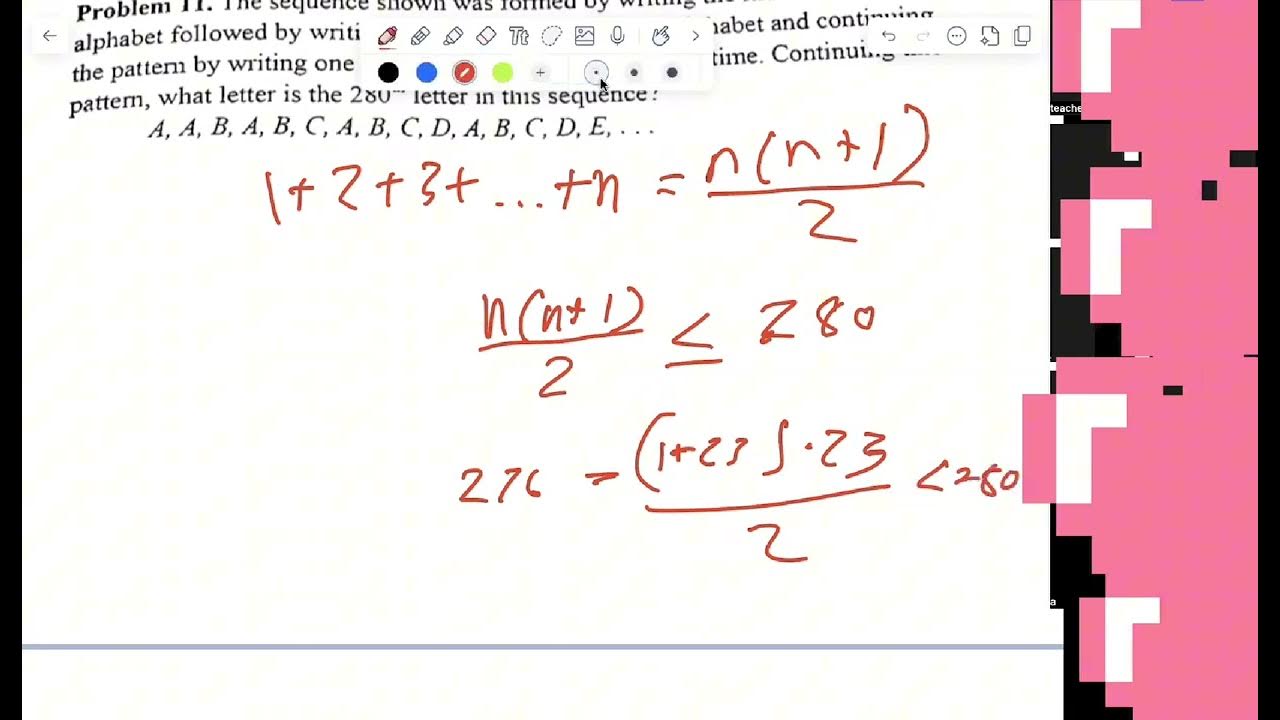 Problem 11. The sequence shown was formed by writing the
alphabet followed by writi abet and continuing
the pattern by writing one time. Continuing
pattern, what letter is the 280 letter in this sequence?
A, A, B, A, B, C, A, B, C, D, A, B, C, D, E, . . .
1+2+3+...+n = n(n+1)/2
n(n+1)/2 ≤ 280
276 = (1+23)·23/2 <280
Tt
teache
a